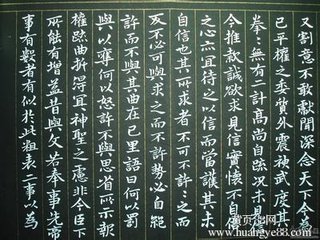 又割意不敢獻聞深念天下今為
已平權之委質外震神武度其
拳〻無有二計高尚自疏况未見信
今推款誠欲求見信實懷不自信
之心亦宜待之以信而當護其未
自信也其所求者不可不許許之而
反不必可與求之而不許勢必自絕
許而不與其曲在己里語曰何以罰
與以奪何以怒許不與思省所示報
權疏曲折得宜〻神聖之慮非今臣下
所能有增益昔與文若奉事先帝
事有數者有似於此粗表二事以為
www.huangye88.com